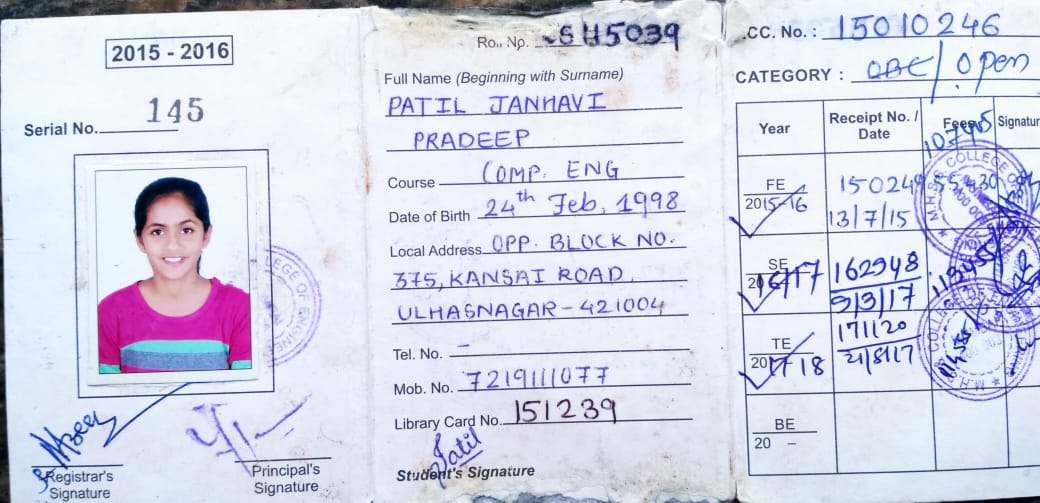 2015 - 2016
Serial No. 145
Registrar's
Signature
Principal's
Signature
Roll No. SH5039
Full Name (Beginning with Surname)
PATIL JANHAVI
PRADEEP
Course COMP. ENG
Date of Birth 24th Feb, 1998
Local Address OPP. BLOCK NO.
375, KANSAI ROAD,
ULHASNAGAR - 421004
Tel. No. –
Mob. No. 7219111077
Library Card No. 151239
Patil
Student's Signature
CC. No. : 15010246
CATEGORY : OBC / Open
Year Receipt No. / Date Fees Signature
FE 2015-16 150249 13/7/15
SE 2016/17 162948 9/3/17
TE 2017-18 171120
BE 20 –